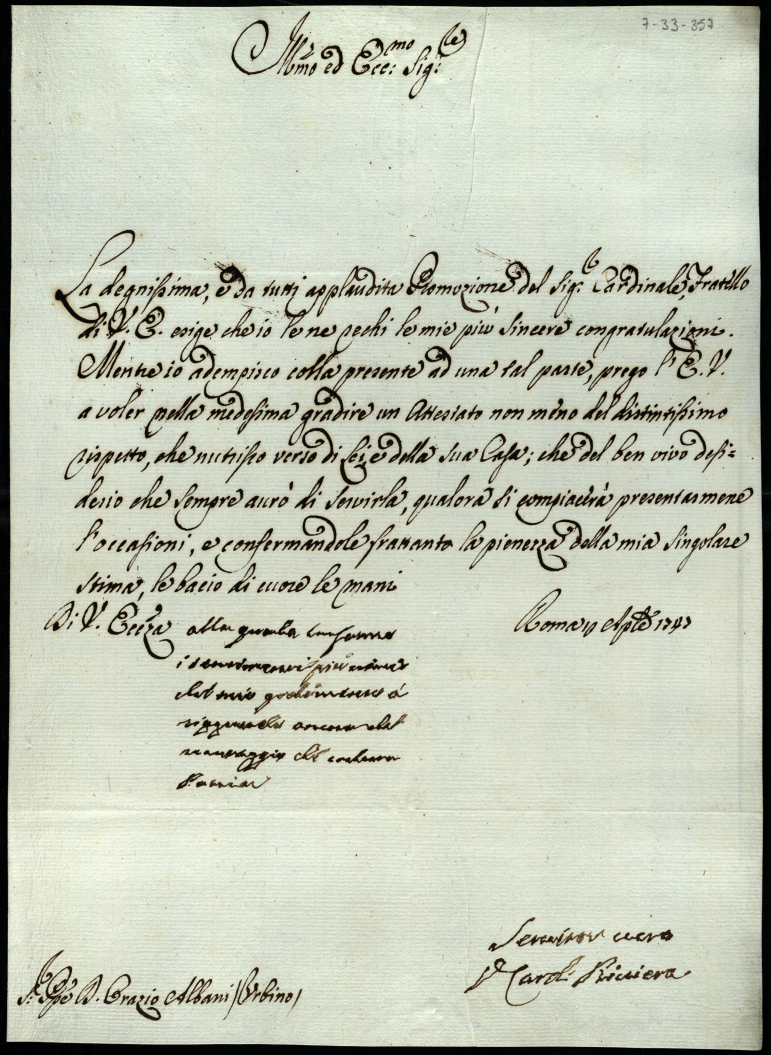 7-33-357
Illmo ed Ecc:mo Sig:re
La degnissima, e da tutti applaudita Promozione del Sig:r Cardinale, Fratello
di V. E. esige che io le ne rechi le mie più sincere congratulazioni.
Mentre io adempisco colla presente ad una tal parte, prego l'E. V.
a voler nella medesima gradire un Attestato non meno del distintissimo
rispetto, che nutrisco verso di Lei, e della sua Casa; che del ben vivo desi=
derio che sempre avrò di servirla, qualora si compiacerà presentarmene
l'occasioni, e confermandole frattanto la pienezza della mia singolare
stima, le bacio di cuore le mani
Di V. Eccza
Roma 19 Aple 1747
alla quale confermo
i sentimenti più
del mio godimento a
riguardo ancora del
vantaggio di codesta
Patria
Servitor vero
Card. Riviera
Sr. Ppe D. Orazio Albani (Urbino)